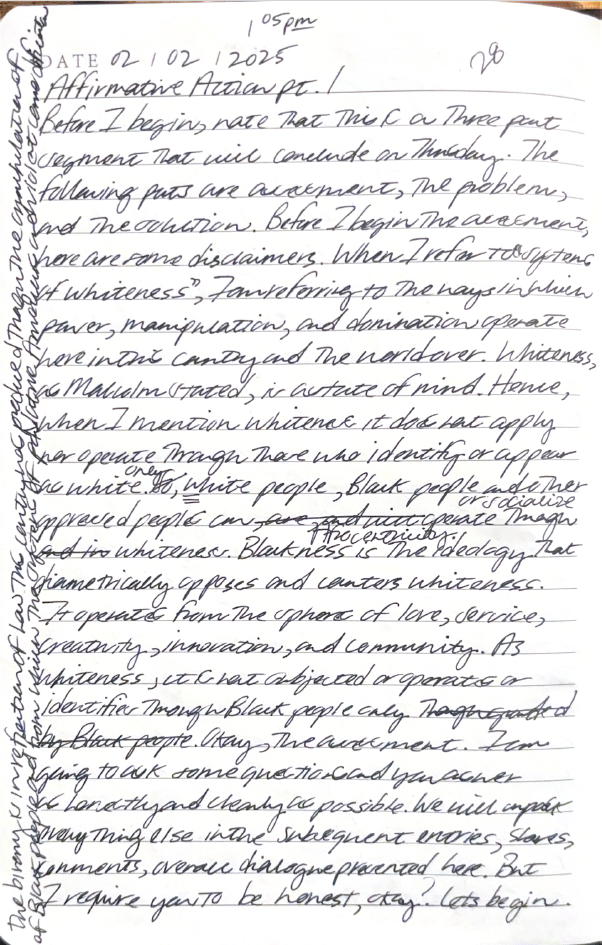 1 05pm
DATE 02 / 02 / 2025
28
Affirmative Action pt. 1
Before I begin, note that this is a three part
segment that will conclude on Thursday. The
following parts are assessment, the problem,
and the solution. Before I begin the assessment,
here are some disclaimers. When I refer to "systems
of whiteness", I am referring to the ways in which
power, manipulation, and domination operate
here in this country and the world over. Whiteness,
as Malcolm stated, is a state of mind. Hence,
when I mention whiteness it does not apply
nor operate through those who identify or appear
as white only. So, white people, Black people and other
oppressed people can, are, and will operate or socialize through
and in whiteness. Blackness is the Afrocentricity! ideology that
diametrically opposes and counters whiteness.
It operates from the sphere of love, service,
creativity, innovation, and community. As
whiteness, it is not subjected or operates or
identifies through Black people only.
by Black people. Okay, the assessment. I am
going to ask some questions and you answer
as honestly and clearly as possible. We will unpack
everything else in the subsequent entries, shares,
comments, overall dialogue presented here. But
I require you to be honest, okay? Lets begin.
the binary in interpretation of law. This country was produced through the
of Black people and from where the system of